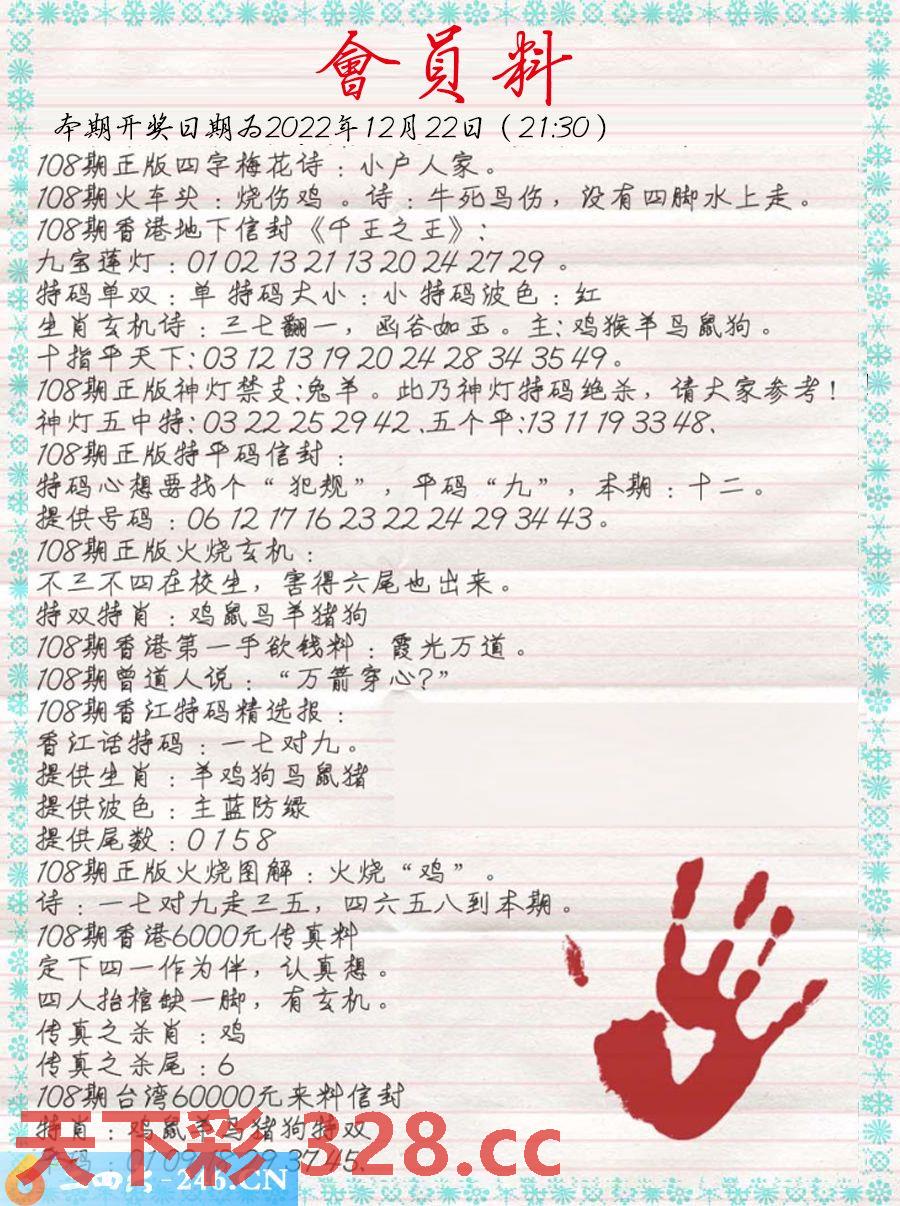 會員料
本期开奖日期为2022年12月22日（21:30）
108期正版四字梅花诗：小户人家。
108期火车头：烧伤鸡 。诗：牛死马伤，没有四脚水上走。
108期香港地下信封《千王之王》：
九宝莲灯：01 02 13 21 13 20 24 27 29 。
特码单双：单 特码大小：小 特码波色：红
生肖玄机诗：三七翻一，函谷如玉。主:鸡猴羊马鼠狗。
十指平天下:03 12 13 19 20 24 28 34 35 49。
108期正版神灯禁支:兔羊。此乃神灯特码绝杀，请大家参考！
神灯五中特:03 22 25 29 42、五个平:13 11 19 33 48、
108期正版特平码信封：
特码心想要找个“犯规”，平码“九”，本期：十二。
提供号码：06 12 17 16 23 22 24 29 34 43。
108期正版火烧玄机：
不三不四在校生，害得六尾也出来。
特双特肖：鸡鼠马羊猪狗
108期香港第一手欲钱料：霞光万道。
108期曾道人说：“万箭穿心?”
108期香江特码精选报：
香江话特码：一七对九。
提供生肖：羊鸡狗马鼠猪
提供波色：主蓝防绿
提供尾数：0 1 5 8
108期正版火烧图解：火烧“鸡”。
诗：一七对九走三五，四六五八到本期。
108期香港6000元传真料
定下四一作为伴，认真想。
四人抬棺缺一脚，有玄机。
传真之杀肖：鸡
传真之杀尾：6
108期台湾60000元来料信封
特肖：鸡鼠羊马猪狗特双
天下彩-328.cc
01 09 37 45、
-246.CN